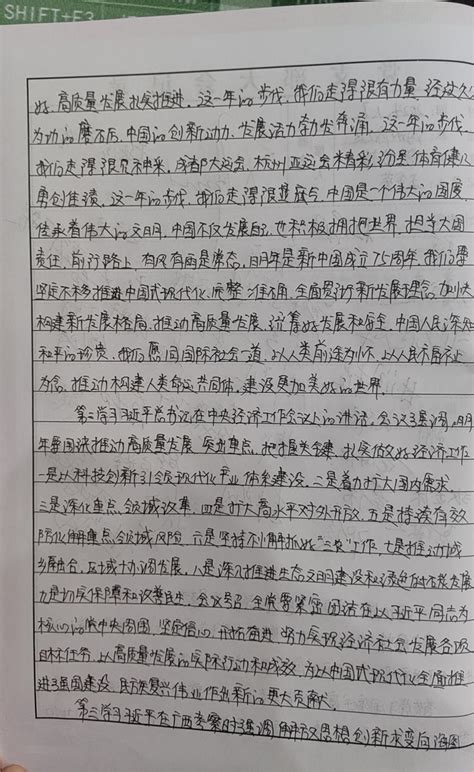 SHIFT+F3
好, 高质量发展扎实推进。这一年的步伐, 我们走得很有力量, 经过久久
为功的磨石后, 中国的创新动力、发展活力勃发奔涌。这一年的步伐
我们走得很见神采, 成都大运会, 杭州亚运会精彩, 体育健儿
勇创佳绩。这一年的步伐, 我们走得很显底气, 中国是一个伟大的国度,
传承着伟大的文明, 中国不仅发展自己, 也积极拥抱世界, 担当大国
责任, 前行路上, 有风有雨是常态, 明年是新中国成立75周年, 我们要
坚定不移推进中国式现代化, 完整、准确、全面贯彻新发展理念, 加快
构建新发展格局, 推动高质量发展, 统筹好发展和安全, 中国人民深知
和平的珍贵, 我们愿同国际社会一道, 以人类前途为怀, 以人民福祉
为念, 推动构建人类命运共同体, 建设更加美好的世界。
第二学习习近平总书记在中央经济工作会议上的讲话, 会议强调, 明
年要围绕推动高质量发展, 突出重点, 把握关键, 扎实做好经济工作
一是以科技创新引领现代化产业体系建设, 二是着力扩大国内需求,
三是深化重点领域改革, 四是扩大高水平对外开放, 五是持续有效
防化解重点领域风险, 六是坚持不懈抓好“三农”工作, 七是推动城
乡融合、区域协调发展, 八是深入推进生态文明建设和绿色低碳发展
九是切实保障和改善民生, 会议号召, 全党要紧密团结在以习近平同志为
核心的党中央周围, 坚定信心, 开拓奋进, 努力实现经济社会发展各项
目标任务, 以高质量发展的实际行动和成效, 为以中国式现代化全面推
进强国建设、民族复兴伟业作出新的更大贡献。
第三学习习近平在广西考察时强调, 解放思想创新求变向海图